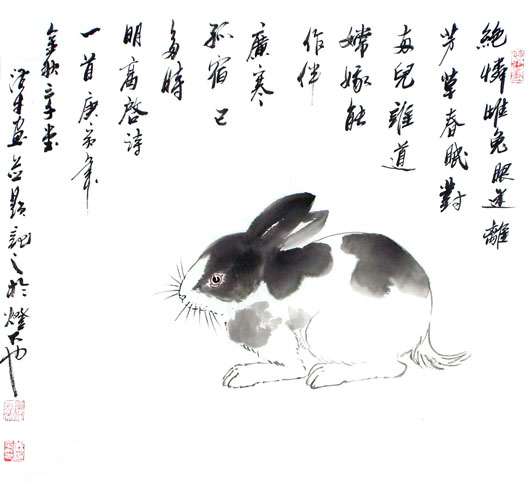 絕憐雌兔眼迷離
芳草春眠對
兩兒誰道
嫦娥能
作伴
廣寒
孤宿已
多時
明高啓詩
一首庚寅年
金秋
畫並題記之於燈下